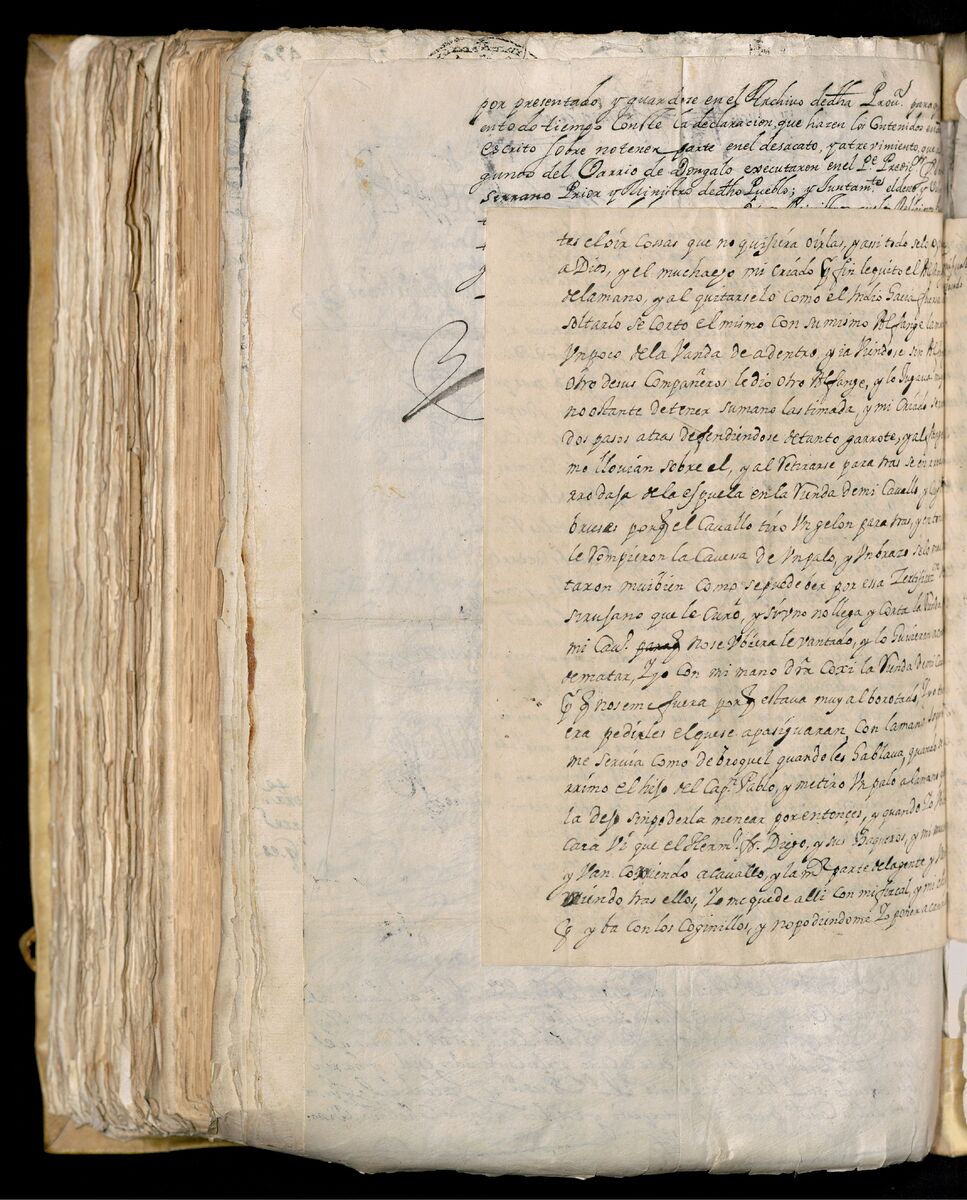 por presentado, y guardese en el Archivo de dha Prouª. para q
en todo tiempo Conste la declaracion, que hazen los Contenidos en
escrito sobre no tener parte en el desacato, y atrevimiento, que
gunos del Varrio de Dongalo executaron en el Pe. Predicr
Serrano Prior y Ministro de dho Pueblo; y Juntamte el dero y
tes el oir Cossas que no quisiera oirlas, y assi todo se lo
a Dios, y el muchacho mi Criado q̃ fin le quito el
de la mano, y al quitarselo como el Indio hacia fuerza
soltarlo se Corto el mismo con su mismo Alfange la
Vn poco de la Vanda de adentro, y ia Viendose sin
Otro de sus Compañeros le dio otro Alfange, y lo Jugava
no ostante de tener su mano lastimada, y mi Criado
Dos pasos atras defendiendose de tanto garrote, y
mo llovian sobre el, y al Retirarse para tras se
rrodaja de la espuela en la Rienda de mi Cavallo, y
bruses porq̃ el Cavallo tiro Vn gelon para tras, y
le Rompieron la Cavesa de Vn palo, y Vn brazo se lo
taron mui bien Como se puede ver por essa Zertificon
sirusano que le Curo, y si Vno no llega y Corta la Rienda
mi Cavo. para q̃ no se Vbiera levantado, y lo huvieran
de matar, Yo Con mi mano dra Coxi la Rienda de mi
q̃ q̃ no se me fuera porq̃ estava muy alborotado,
era pedirles el que se apasiguaran, Con la mano
me servia Como de broquel quando les hablava, quando
rrimo el hijo del Capn. Pablo, y me tiro Vn palo a la mano
la dejo sin poderla menear por entonces, y quando Yo
Cara Vi que el Hermo. fr. Diego, y sus Baqueros, y mi
y Van Corriendo a cavallo, y la mr parte de la gente
tras ellos, Yo me quede alli Con mi fiscal, y mi
q̃ yba Con los Coginillos, y no podiendome Yo poner a